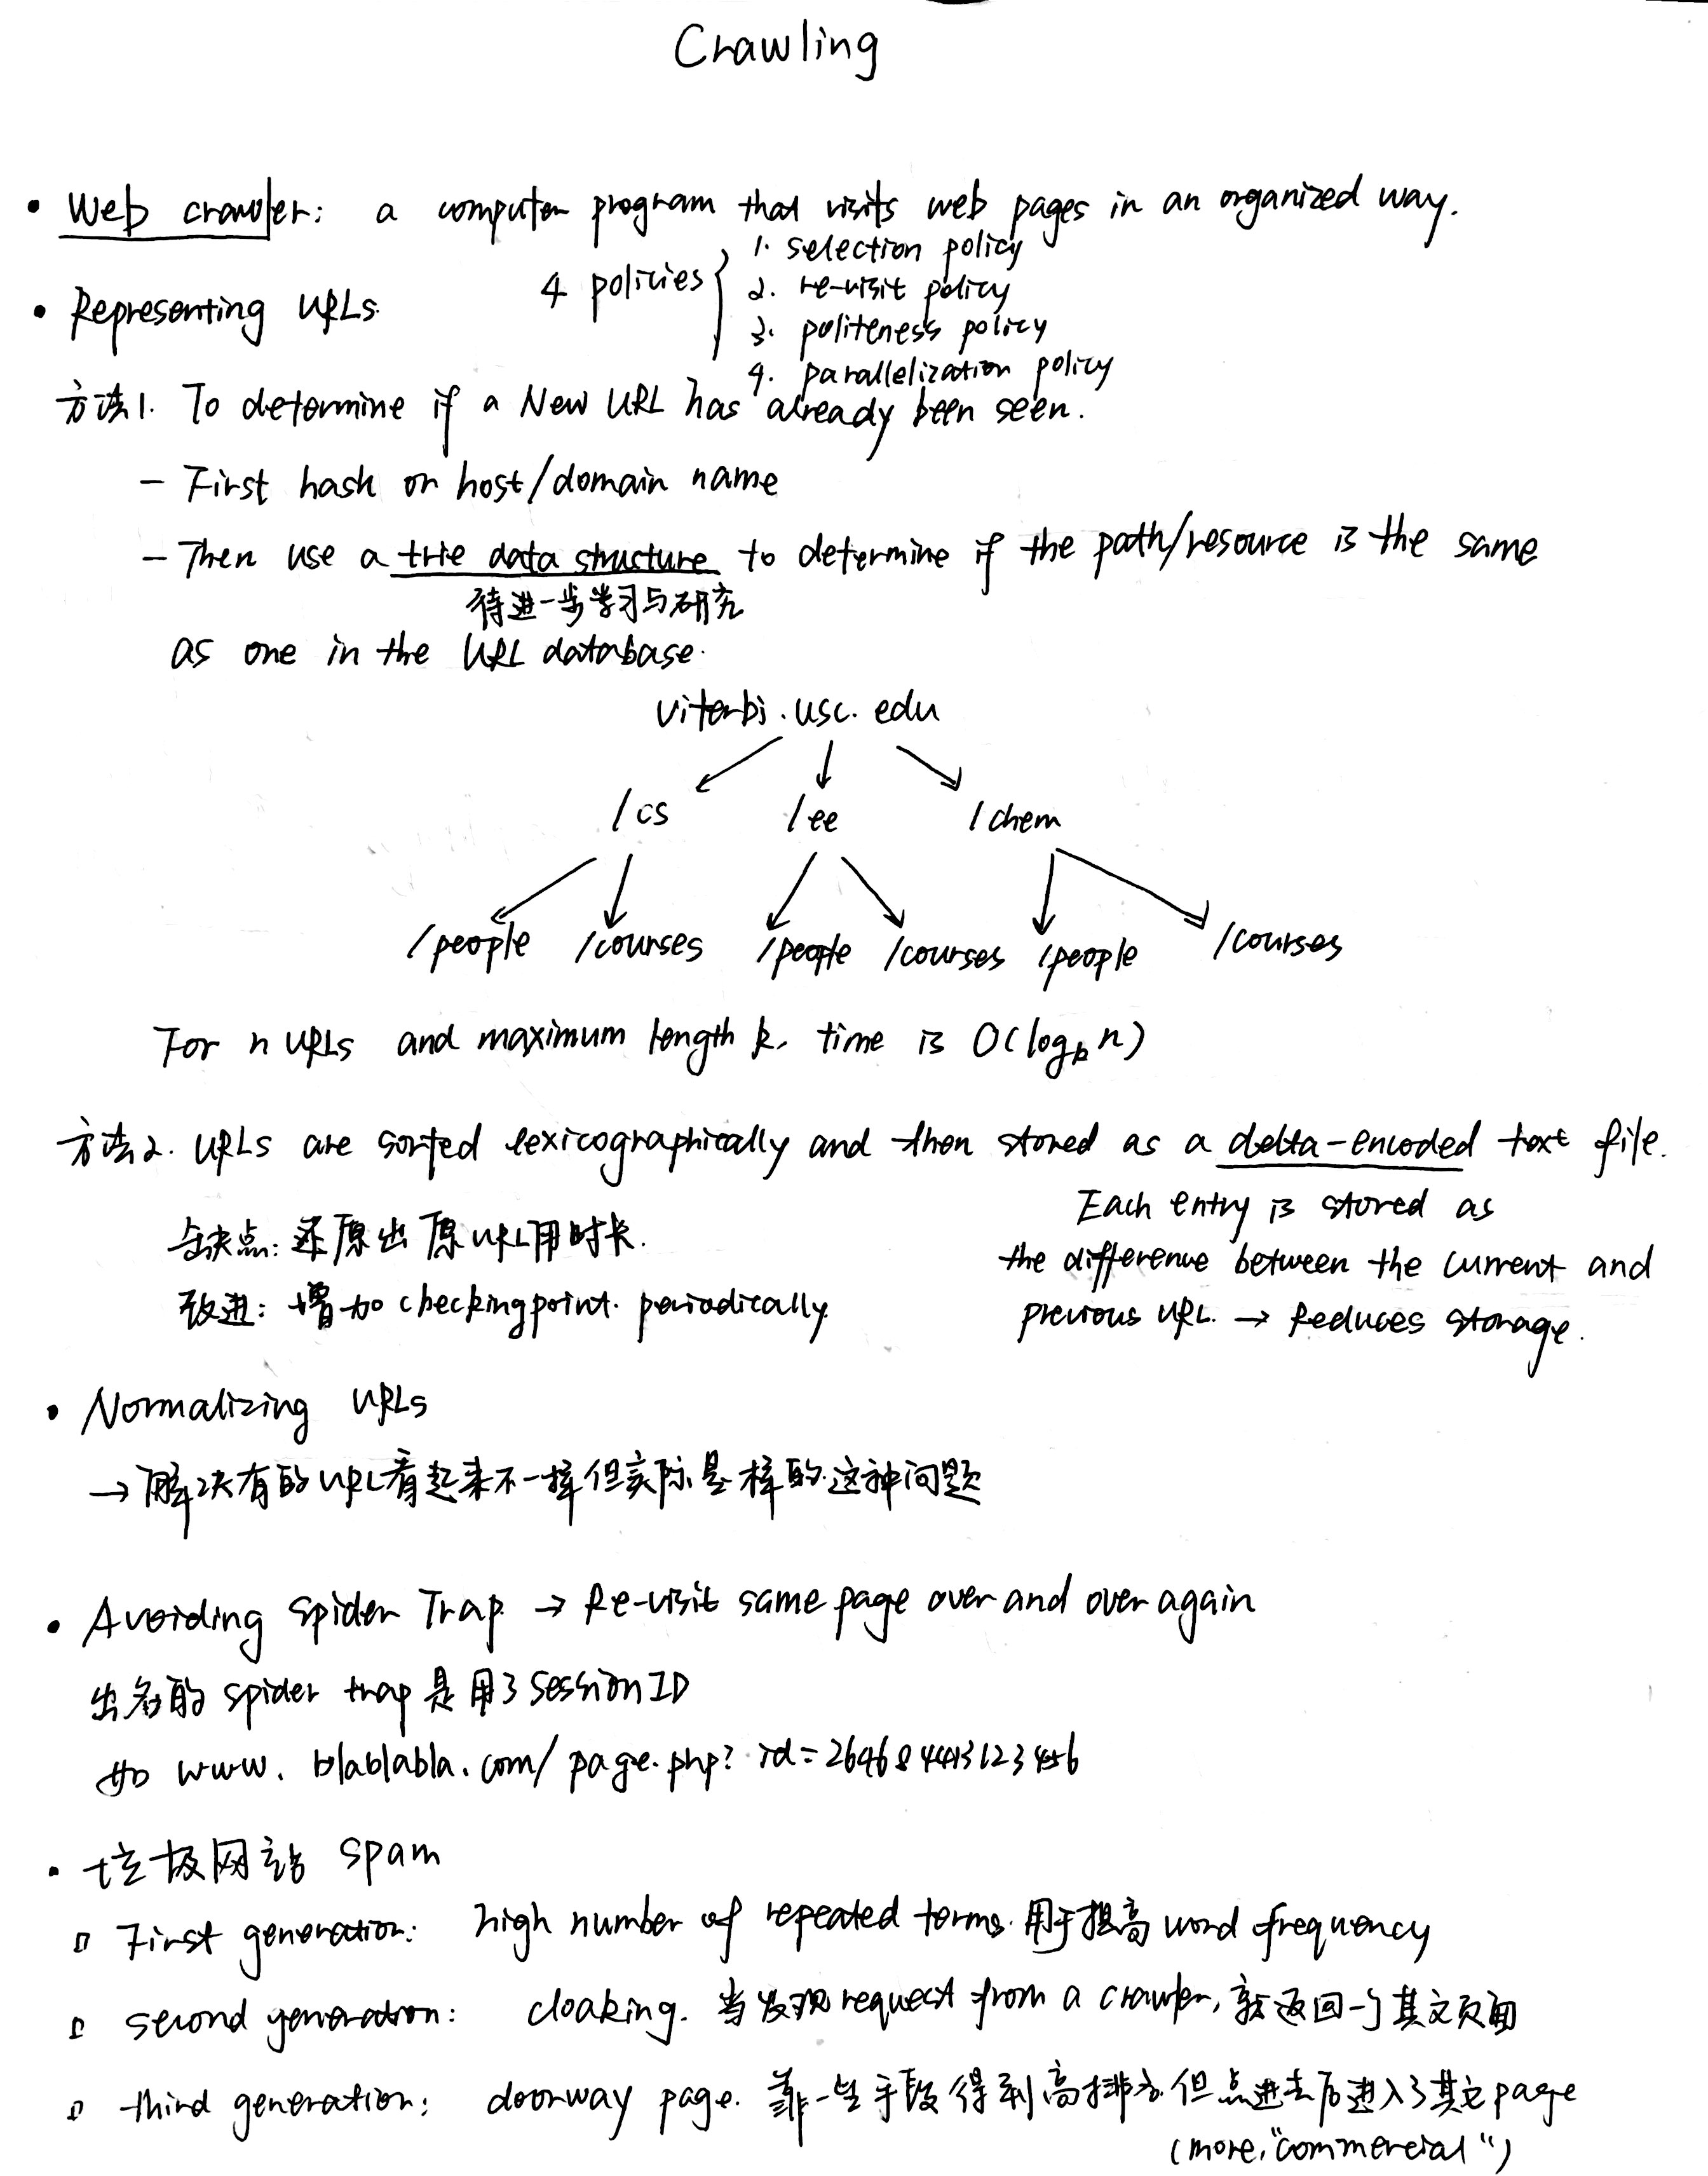 Crawling
• Web crawler: a computer program that visits web pages in an organized way.
4 policies
1. selection policy
2. re-visit policy
3. politeness policy
4. parallelization policy
• Representing URLs.
方法1. To determine if a New URL has already been seen.
- First hash on host/domain name
- Then use a trie data structure to determine if the path/resource is the same
待进一步学习与研究
as one in the URL database.
viterbi.usc.edu
/cs /ee /chem
/people /courses /people /courses /people /courses
For n URLs and maximum length k, time is O(logk n)
方法2. URLs are sorted lexicographically and then stored as a delta-encoded text file.
Each entry is stored as
the difference between the current and
previous URL. → Reduces storage.
缺点: 还原出原URL用时长.
改进: 增加 checkingpoint periodically
• Normalizing URLs
→ 解决有的URL看起来不一样但实际是样的这种问题
• Avoiding Spider Trap → Re-visit same page over and over again
出名的 spider trap 是用了 Session ID
如 www.blablabla.com/page.php?id=
• 垃圾网站 spam
First generation: high number of repeated terms. 用于提高 word frequency
second generation: cloaking. 当发现 request from a crawler, 就返回一个其文页面
third generation: doorway page. 靠一些手段得到高排名但点进去后进入了其它page
(more "commercial")